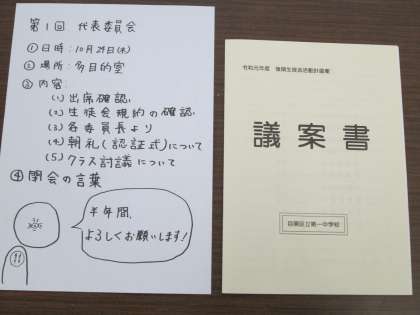 第1回 代表委員会
①日時:10月29日(水)
②場所:多目的室
③内容:
(1)出席確認
(2)生徒会規約の確認
(3)各委員長より
(4)朝礼(認証式)について
(5)クラス討議について
④閉会の言葉
半年間、
よろしくお願いします!
令和元年度 後期生徒会活動計画案
議案書
目黒区立第一中学校